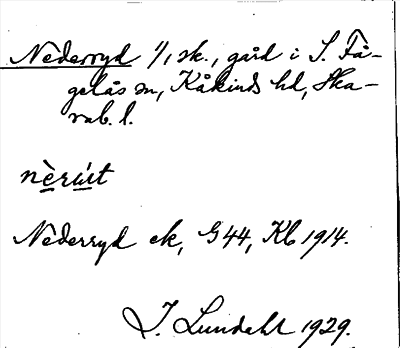 Nederryd 1/1 sk., gård i S. Få-
gelås sn, Kåkinds hd, Ska-
rab. l.
nèrúɩt
Nederryd ek, G44, Kb 1914.
I. Lundahl 1929.